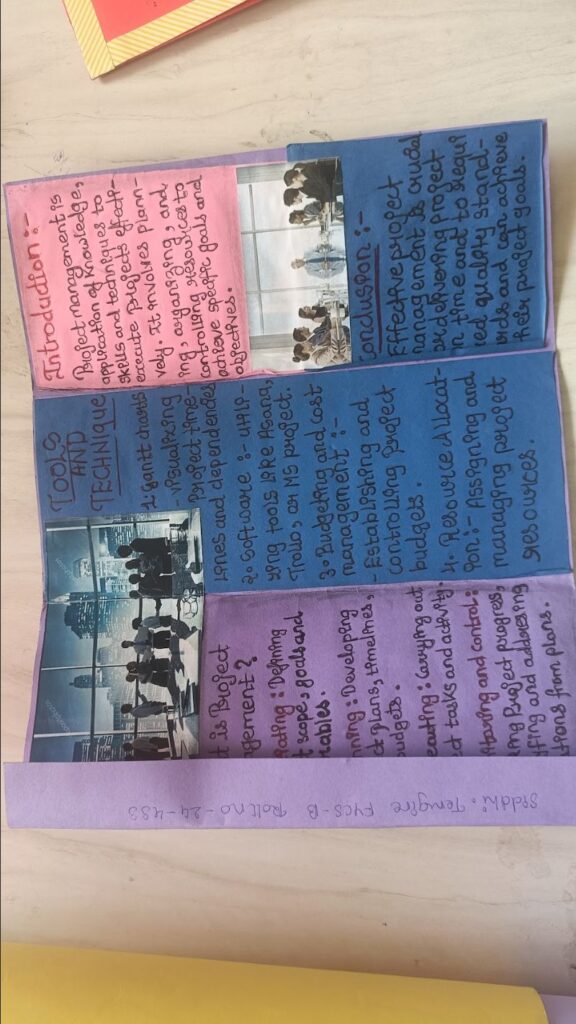 Introduction :-
Project management is
application of knowledge,
skills and techniques to
execute projects effect-
vely. It involves plann-
ing, organizing, and
controlling resources to
achieve specific goals and
objectives.
onclusion :-
Effective project
management is crucial
or delivering project
n time and to requi
red quality stand-
rds and can achieve
heir project goals.
TOOLS
AND
TECHNIQUE
1. Gantt charts
- visualizing
Project time-
lines and dependencies
2. Software :- Utili-
zing tools like Asana,
Trello, or MS project.
3. Budgeting and cost
management :-
- Establishing and
controlling project
budgets.
4. Resource Allocat-
ion :- Assigning and
managing project
resources.
t is Project
agement?
iating : Defining
t scope, goals and
rables.
nning : Developing
ct plans, timelines,
udgets.
ecuting : Carrying out
ct tasks and activity.
itoring and control :
king Project progress,
ifying and addressing
ations from plans.
Siddhi. Temgire FYCS-B Roll no - 24-433